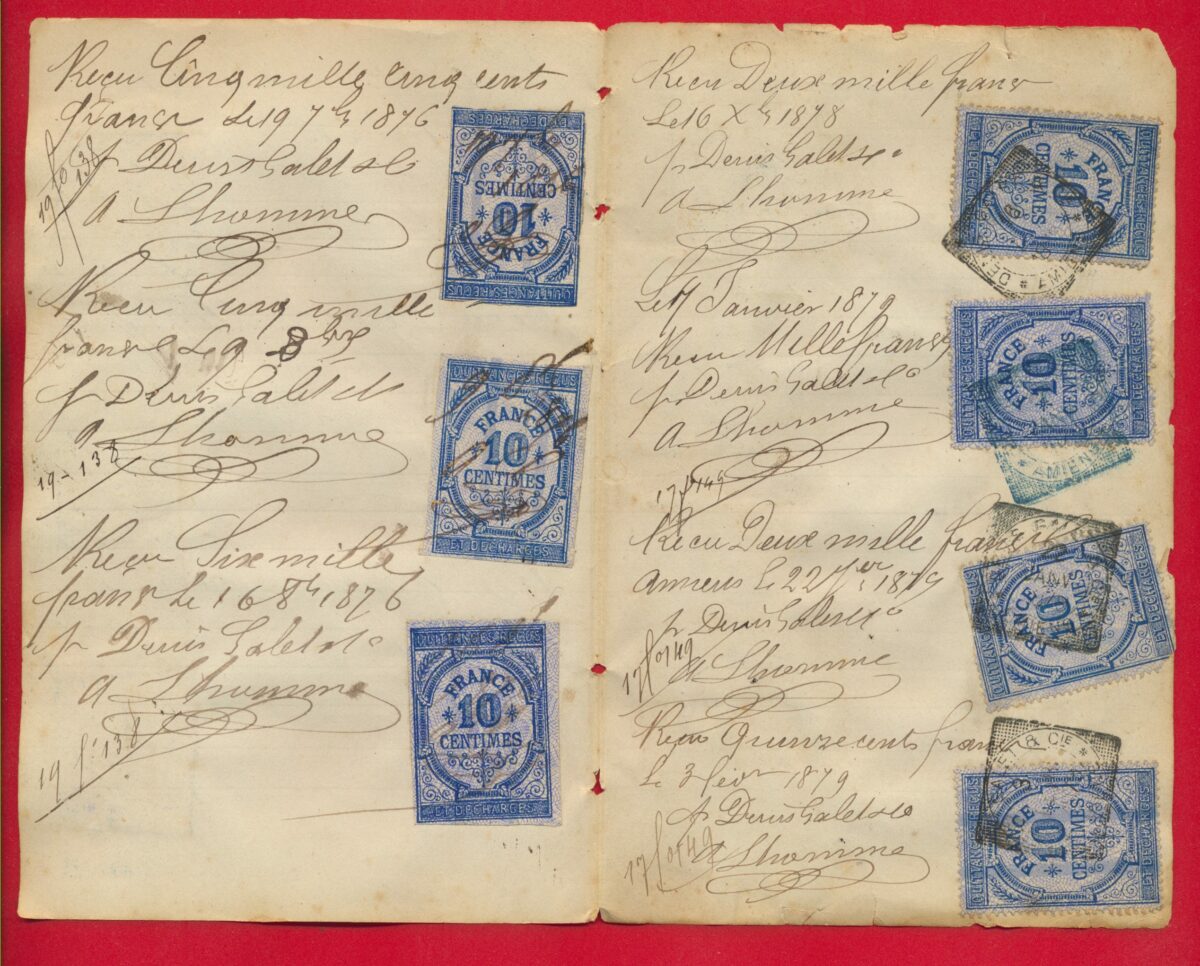 Reçu Cinq mille cinq cents
francs Le 19 7bre 1876
p Denis Galet & Co
A Lhomme
19 fo 138
QUITTANCES REÇUS
FRANCE
10
CENTIMES
ET DECHARGES
Reçu Cinq mille
francs Le 9 8bre
p Denis Galet & Co
A Lhomme
19 - 138
QUITTANCES REÇUS
FRANCE
10
CENTIMES
ET DECHARGES
Reçu Six mille
francs Le 16 8bre 1876
p Denis Galet & Co
A Lhomme
19 fo 138
QUITTANCES REÇUS
FRANCE
10
CENTIMES
ET DECHARGES
Reçu Deux mille francs
Le 16 Xbre 1878
p Denis Galet & Co
A Lhomme
QUITTANCES REÇUS
FRANCE
10
CENTIMES
ET DECHARGES
Le Janvier 1879
Reçu Mille francs
p Denis Galet & Co
A Lhomme
17 fo 149
QUITTANCES REÇUS
FRANCE
10
CENTIMES
ET DECHARGES
AMIENS
Reçu Deux mille francs
Amiens le 22 1879
p Denis Galet & Co
17 fo 149
A Lhomme
QUITTANCES REÇUS
FRANCE
10
CENTIMES
ET DECHARGES
Reçu Quinze cents francs
Le 3 fév 1879
p Denis Galet & Co
17 fo 149
A Lhomme
& CIE
QUITTANCES REÇUS
FRANCE
10
CENTIMES
ET DECHARGES